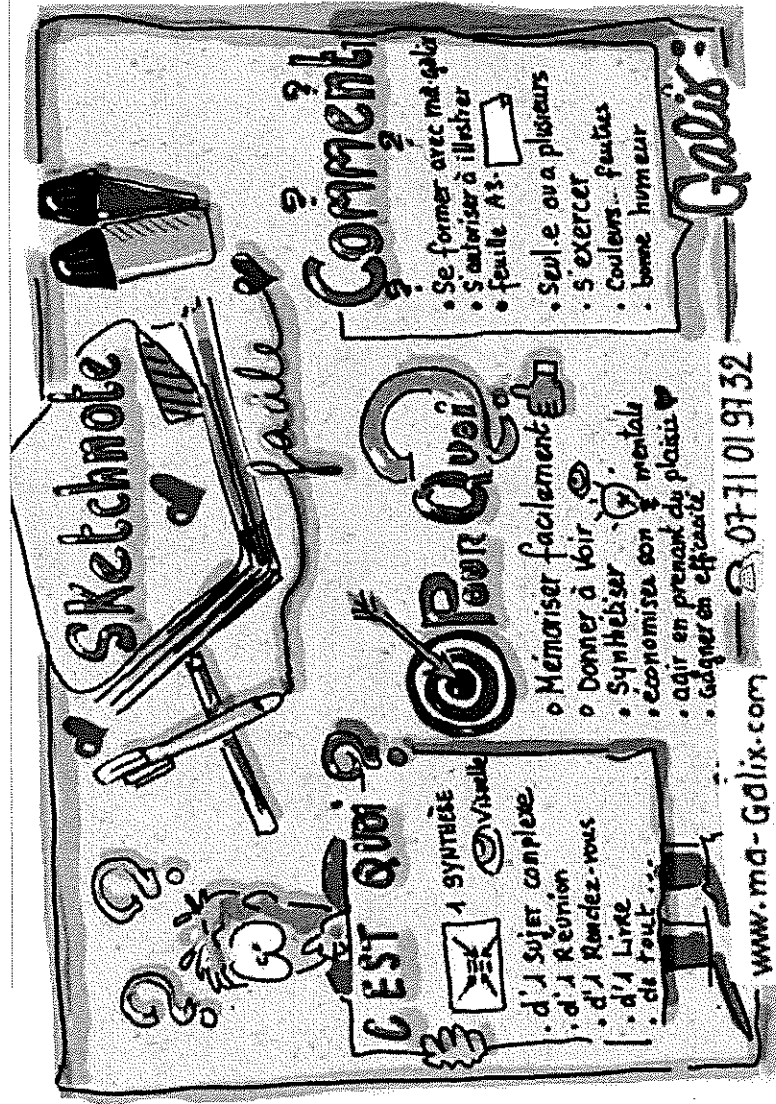 SKetchnote
facile
C EST QUOI ?
1 SYNTHÈSE
Visuelle
. d'1 Sujet complexe
. d'1 Réunion
. d'1 Rendez-vous
. d'1 Livre
. de tout ...
Pour Quoi ?
o Mémoriser facilement
o Donner à voir
. Synthétiser
. économiser son énergie mentale
. agir en prenant du plaisir
. Gagner en efficacité
Comment
? ? ? ? ?
. Se former avec ma-galix
. S'autoriser à illustrer
. feuille A3.
. Seul.e ou a plusieurs
. S'exercer
. Couleurs.. feutres
. bonne humeur
Galix
www.ma-Galix.com
07 71 01 97 32